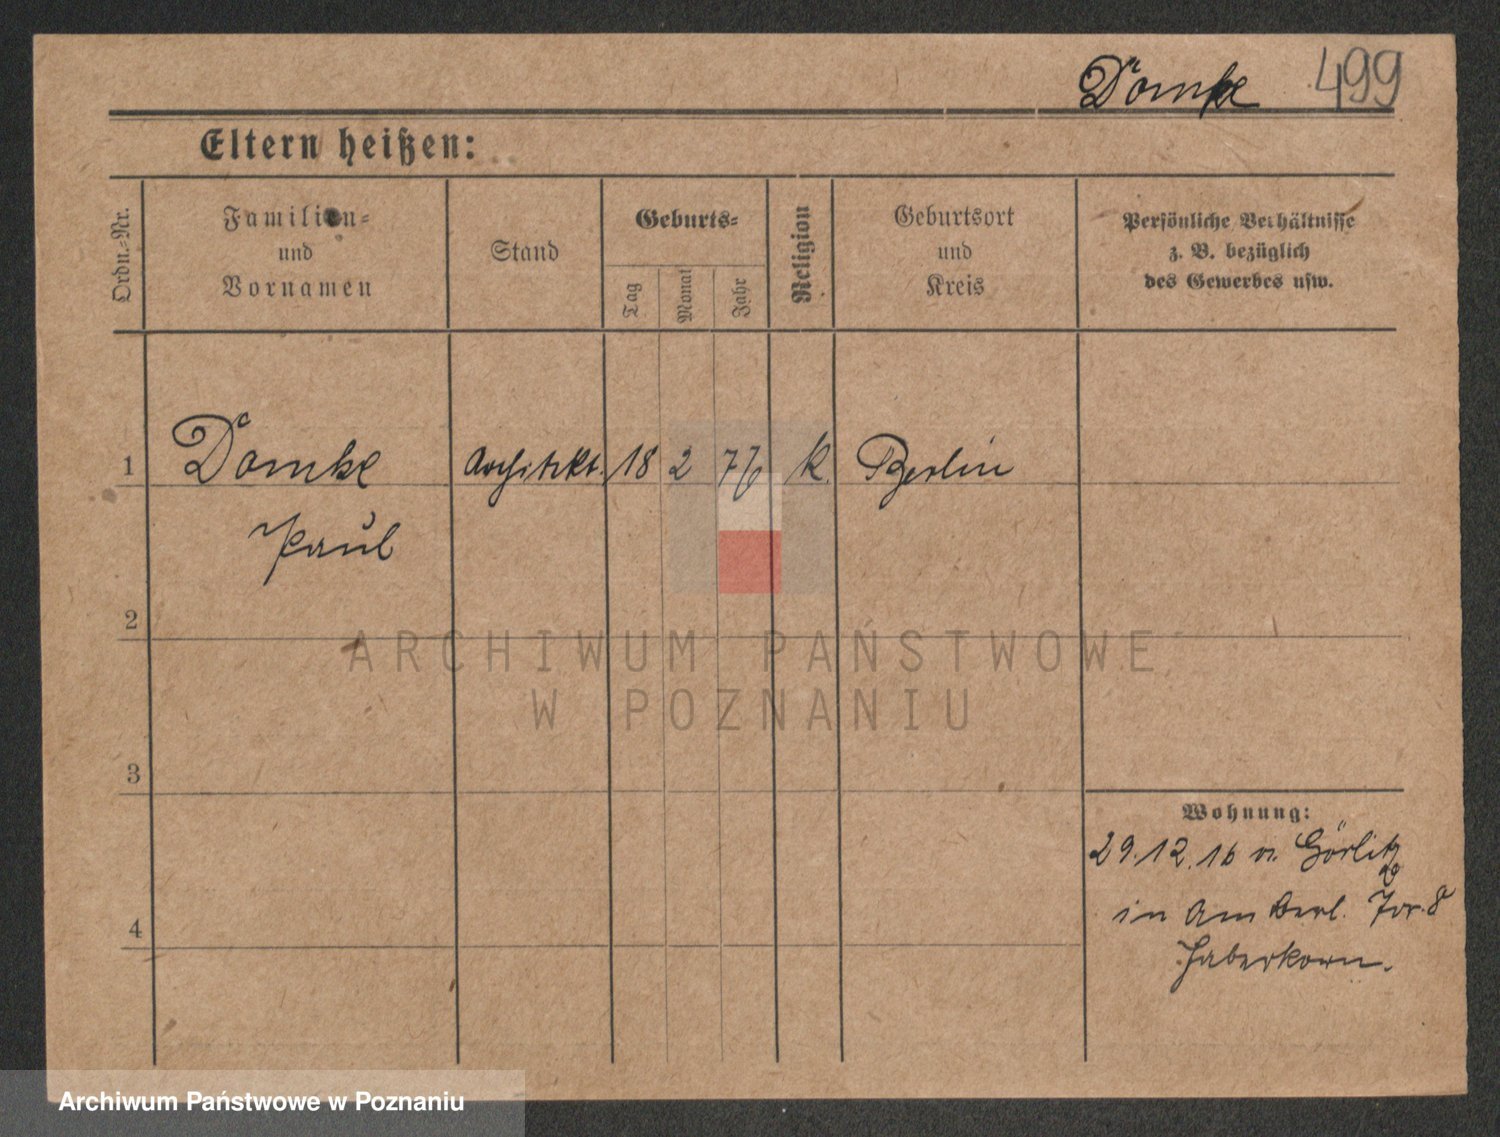 Dömke 499
Eltern heißen:
Ordn.-Nr.
Familien-
und
Vornamen
Stand
Geburts-
Tag
Monat
Jahr
Religion
Geburtsort
und
Kreis
Persönliche Verhältnisse
z. B. bezüglich
des Gewerbes usw.
1 Dömke Architekt. 18 2 76 K. Berlin
Paul
2
ARCHIWUM PAŃSTWOWE
W POZNANIU
3
Wohnung:
29.12.16 v. Görlitz
in Am Berl. Tor 8
4
Haberkorn.
Archiwum Państwowe w Poznaniu